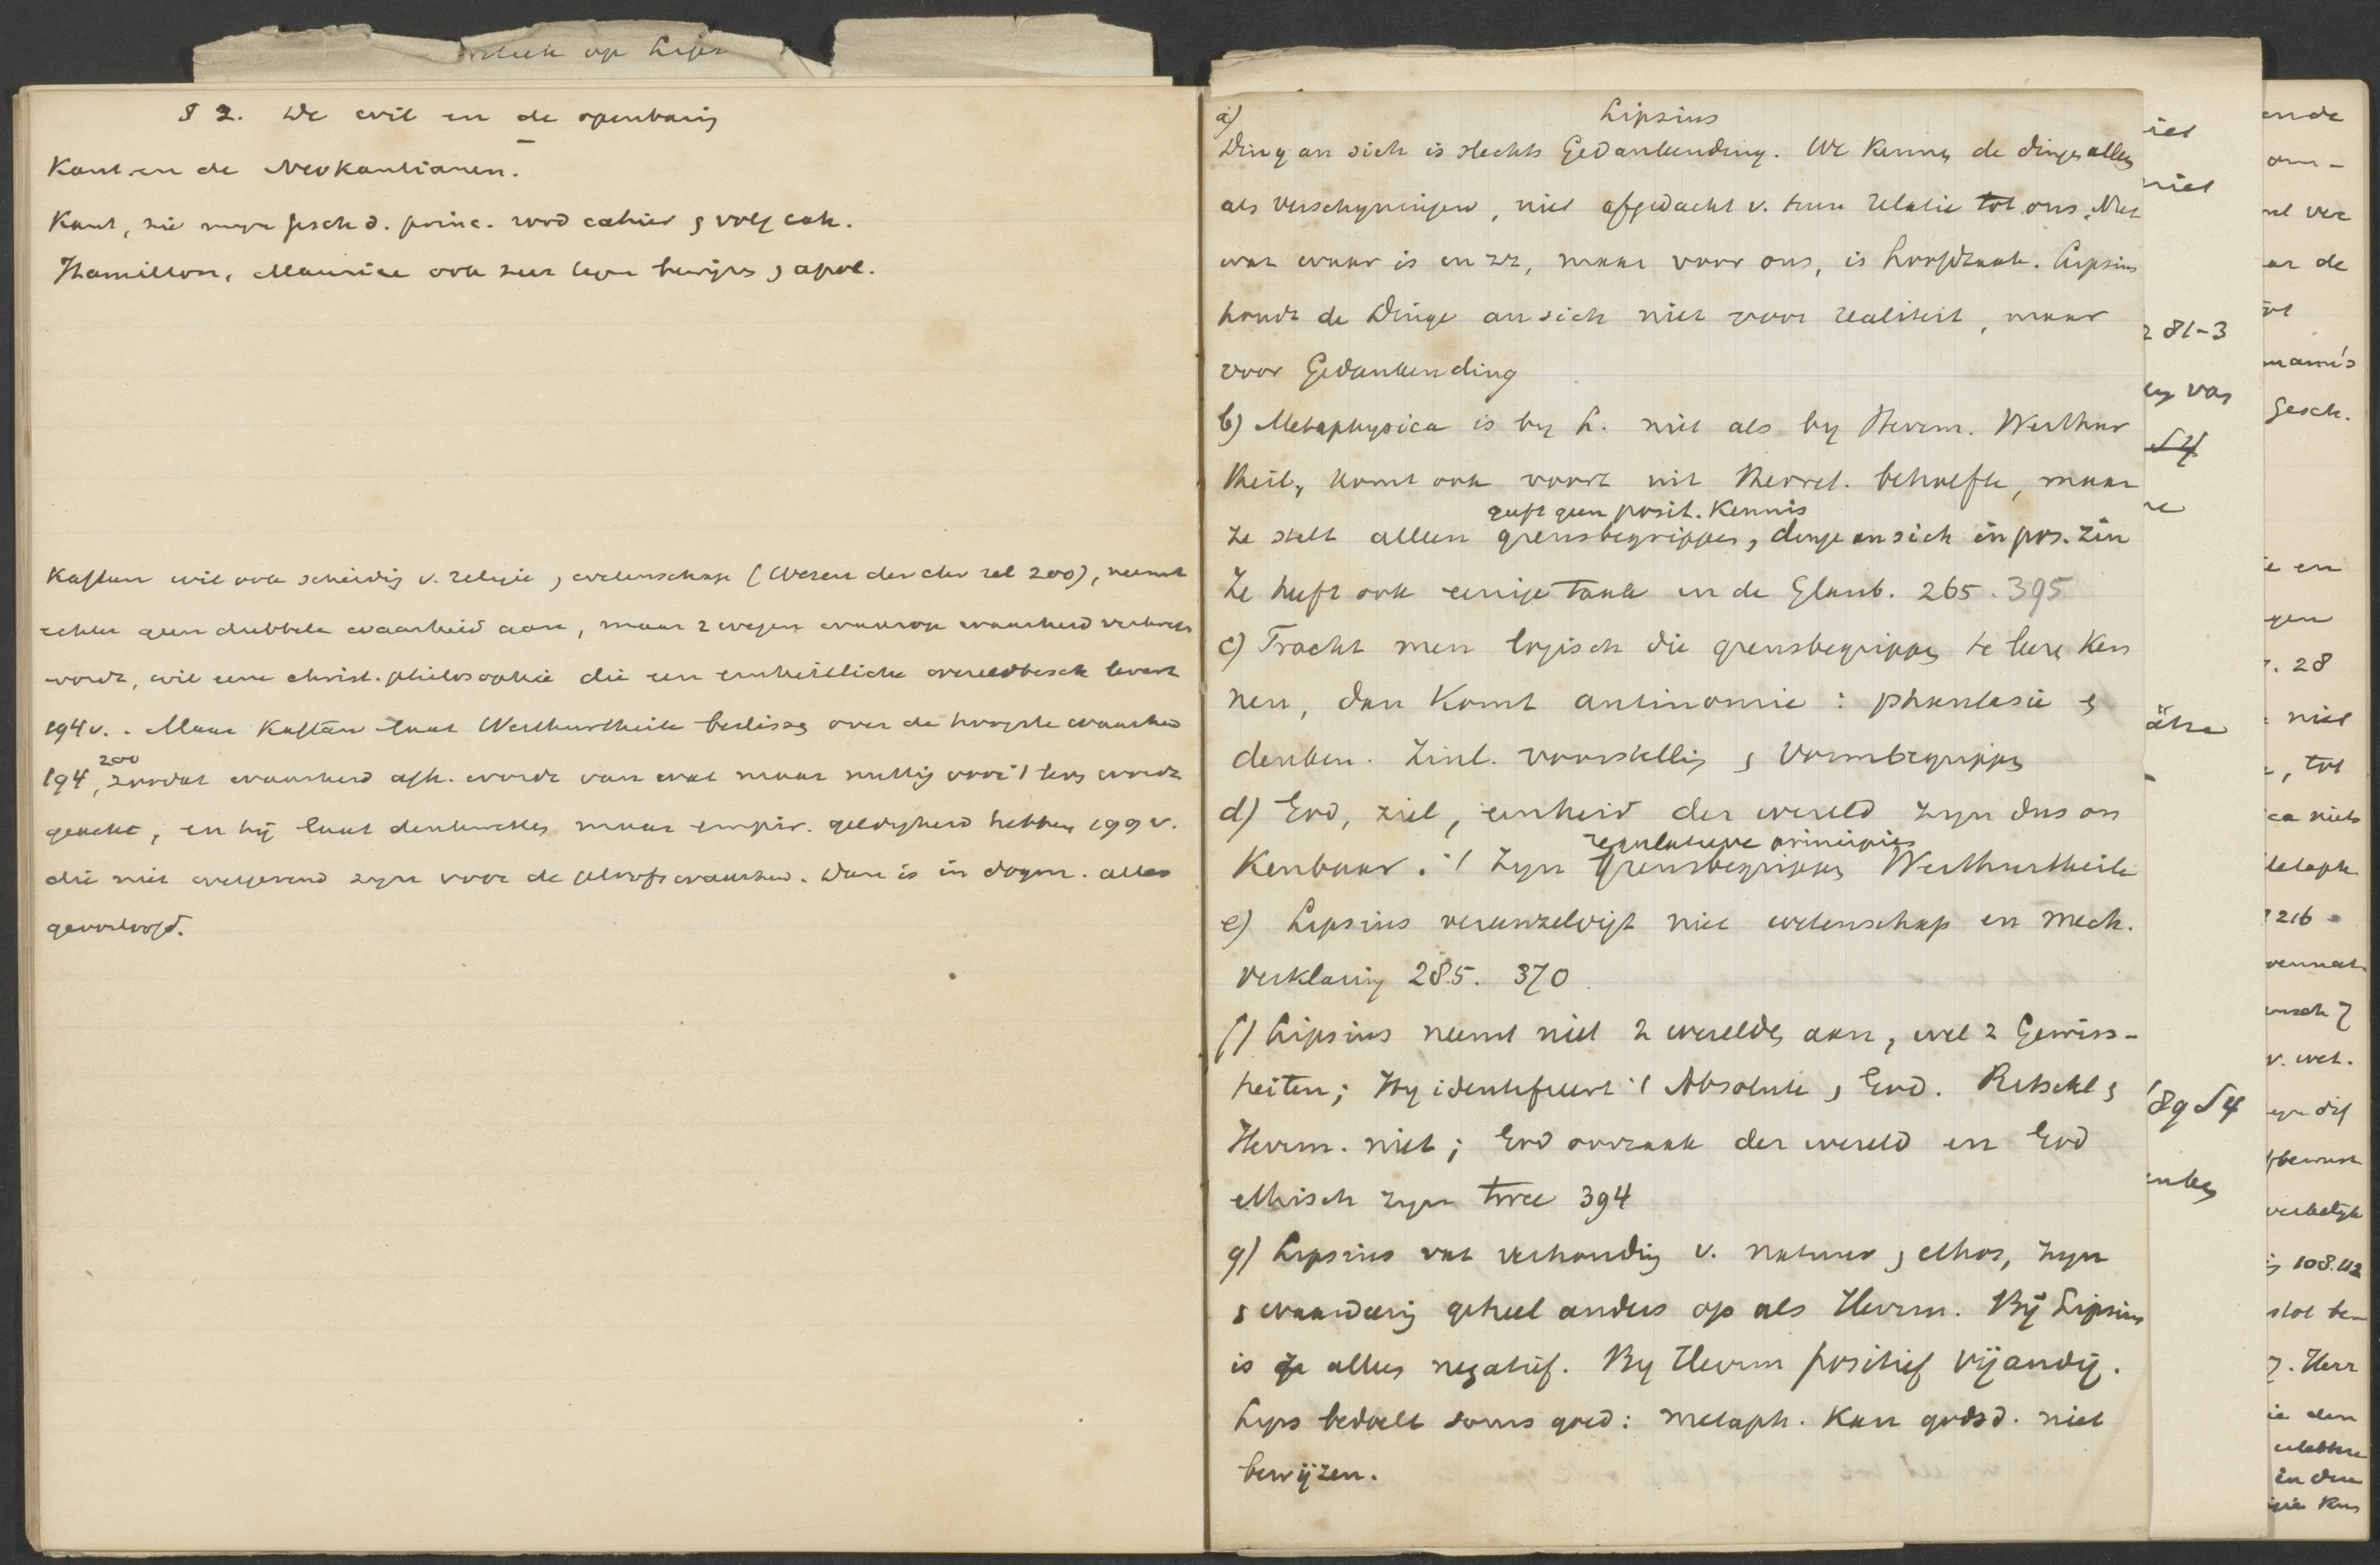 § 2. De wil en de openbaring
Kant en de Neokantianen.
Kant, zie mijn gesch d. princ. rood cahier & volg cah.
Hamilton, Maurice ook zeer tegen bewijs & apol.
Kaftan wil ook scheiding v. religie & wetenschap (Wesen der chr rel 200), neemt
echter geen dubbele waarheid aan, maar 2 wegen waarop waarheid verkreg
wordt, wil eene christ. philosophie die een einheitliche wereldbesch levert
194 v. . Maar Kaftan laat Werthurtheile besliss over de hoogste waarheid
200
194, zoodat waarheid afh. wordt van wat maar nuttig voor 't lev wordt
geacht, en hij laat denkwetten maar empir. geldigheid hebben 199 v.
die niet wegend zijn voor de geloofswaarheid. Dan is in dogm. alles
geoorloofd.
op Lips
Lipsius
a)
Ding an sich is slechts Gedankending. We kennen de dingen alleen
als verschijningen, niet afgedacht v. hun relatie tot ons. Niet
wat waar is en zz, maar voor ons, is hoofdzaak. Lipsius
houdt de Dinge an sich niet voor realiteit, maar
voor Gedankending
b) Metaphysica is by L. niet als by Herrm. Werthur
theil, komt ook voort uit theoret. behoefte, maar
geeft geen posit. Kennis
ze stelt alleen grensbegrippen, dinge an sich in pos. zin
Ze heeft ook eenige taak in de Glaub. 265. 395
c) Tracht men logisch die grensbegrippen te leeren ken
nen, dan komt antinomie: phantasie &
denken. Zinl. voorstelling & Vormbegrippen
d) God, ziel, eenheid der wereld zyn dus on
regulatieve principies
kenbaar. 't zyn grensbegrippen Werthurtheile
e) Lipsius vereenzelvigt niet wetenschap en mech.
verklaring 285. 370
f) Lipsius neemt niet 2 werelden aan, wel 2 Gewiss-
heiten; Hy identifieert 't Absolute & God. Ritschl &
Herrm. niet; God oorzaak der wereld en God
ethisch zyn twee 394
g) Lipsius vat verhouding v. natuur & ethos, zyn
& waardeering geheel anders op als Herrm. Bij Lipsius
is ze alleen negatief. By Herrm positief vijandig.
Lips bedoelt soms goed: metaph. kan godsd. niet
bewijzen.
niet
281-3
§ 4
89 § 4
ende
om-
ar de
Gesch.
ie en
gen
28
niet
, tot
ca niets
Metaph
216
v. wet.
108.112
Herr
in deze